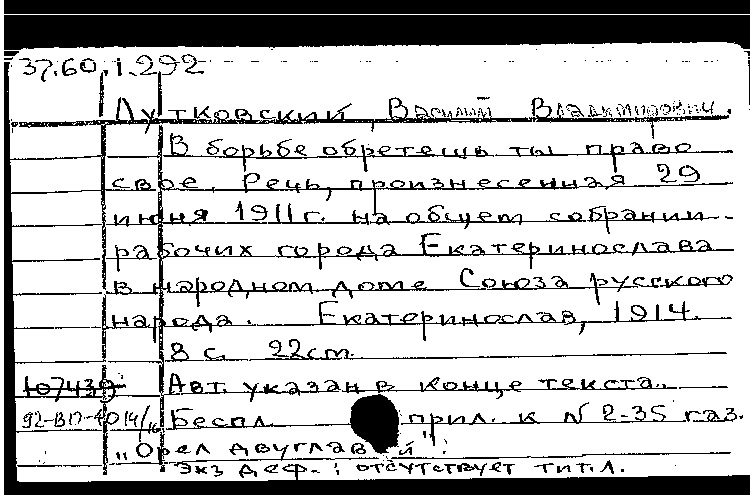 37.60.1.292
Лутковский, Василий Владимирович.
В борьбе обретешь ты право
свое. Речь, произнесенная 29
июня 1911г. на общем собрании
рабочих города Екатеринослава
в народном доме Союза русского
народа. Екатеринослав, 1914.
8 с. 22 cm.
107439 Авт. указан в конце текста.
92-ВП-4014/16 Беспл. прил. к N 2-35 газ.
"Орел двуглавый".
Экз деф.: отсутствует тит.л.